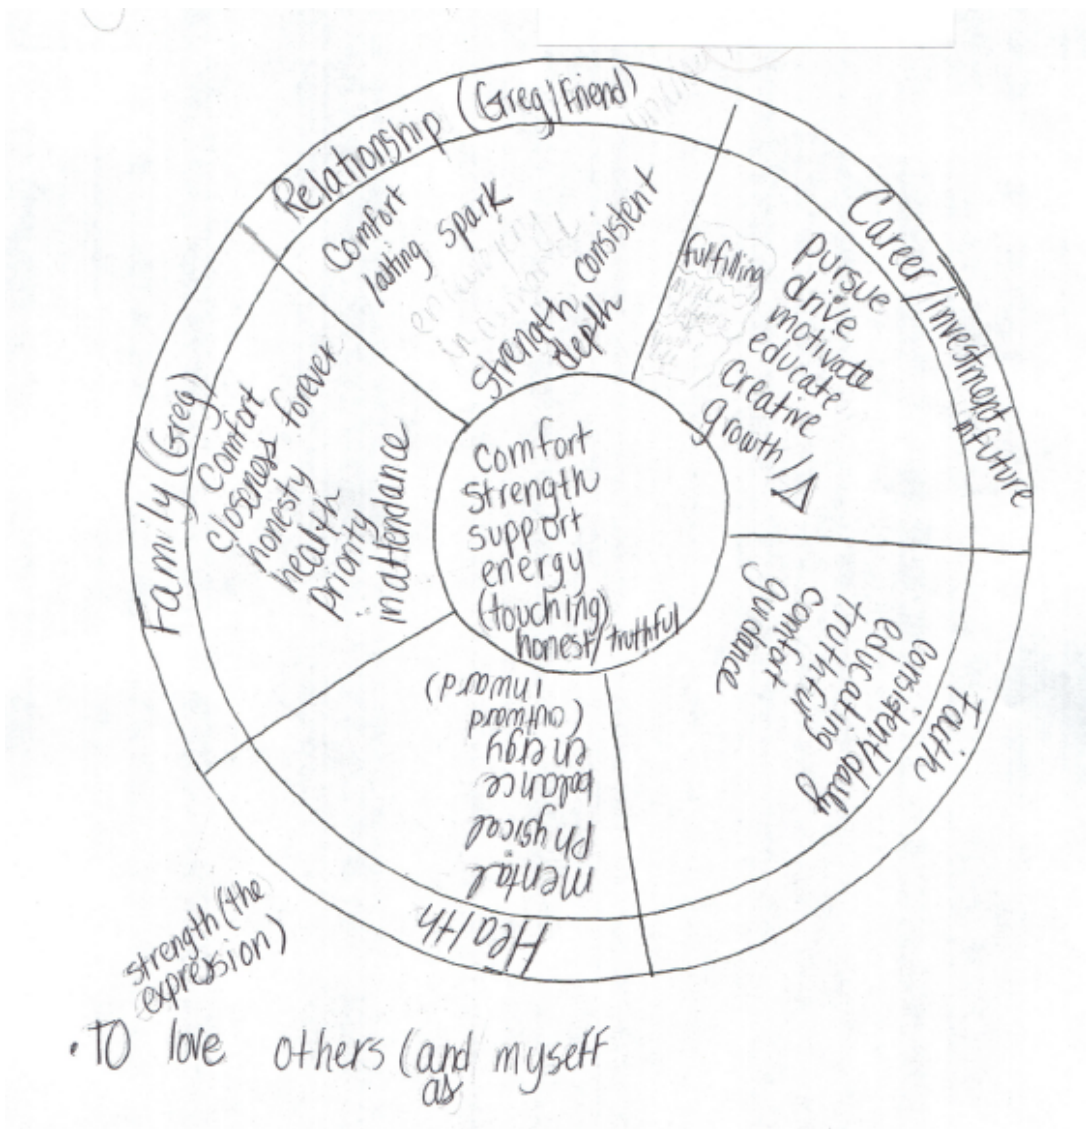 Relationship (Greg/Friend)
Comfort
lasting spark
consistent
strength
depth
Career/investment
nfuture
fulfilling
pursue
drive
motivate
educate
creative
growth/Δ
Faith
consistent/daily
educating
truthful
comfort
guidance
Health
mental
physical
balance
energy
(outward
inward)
Family (Greg)
Comfort
closeness forever
honesty
health
priority
inattendance
Comfort
strength
support
energy
(touching)
honest/truthful
strength (the
expression)
• To love others (and myself
as